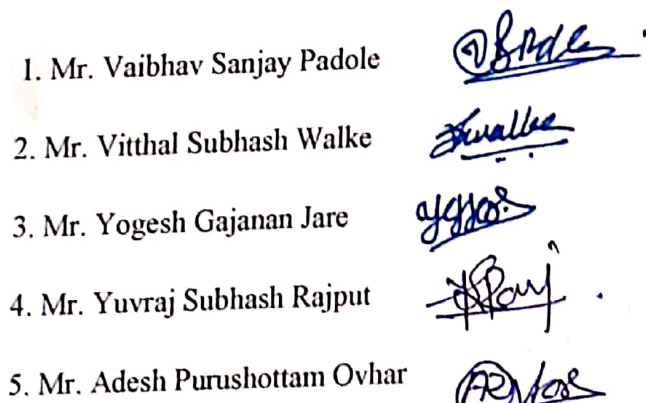 1. Mr. Vaibhav Sanjay Padole
2. Mr. Vitthal Subhash Walke
3. Mr. Yogesh Gajanan Jare
4. Mr. Yuvraj Subhash Rajput
5. Mr. Adesh Purushottam Ovhar